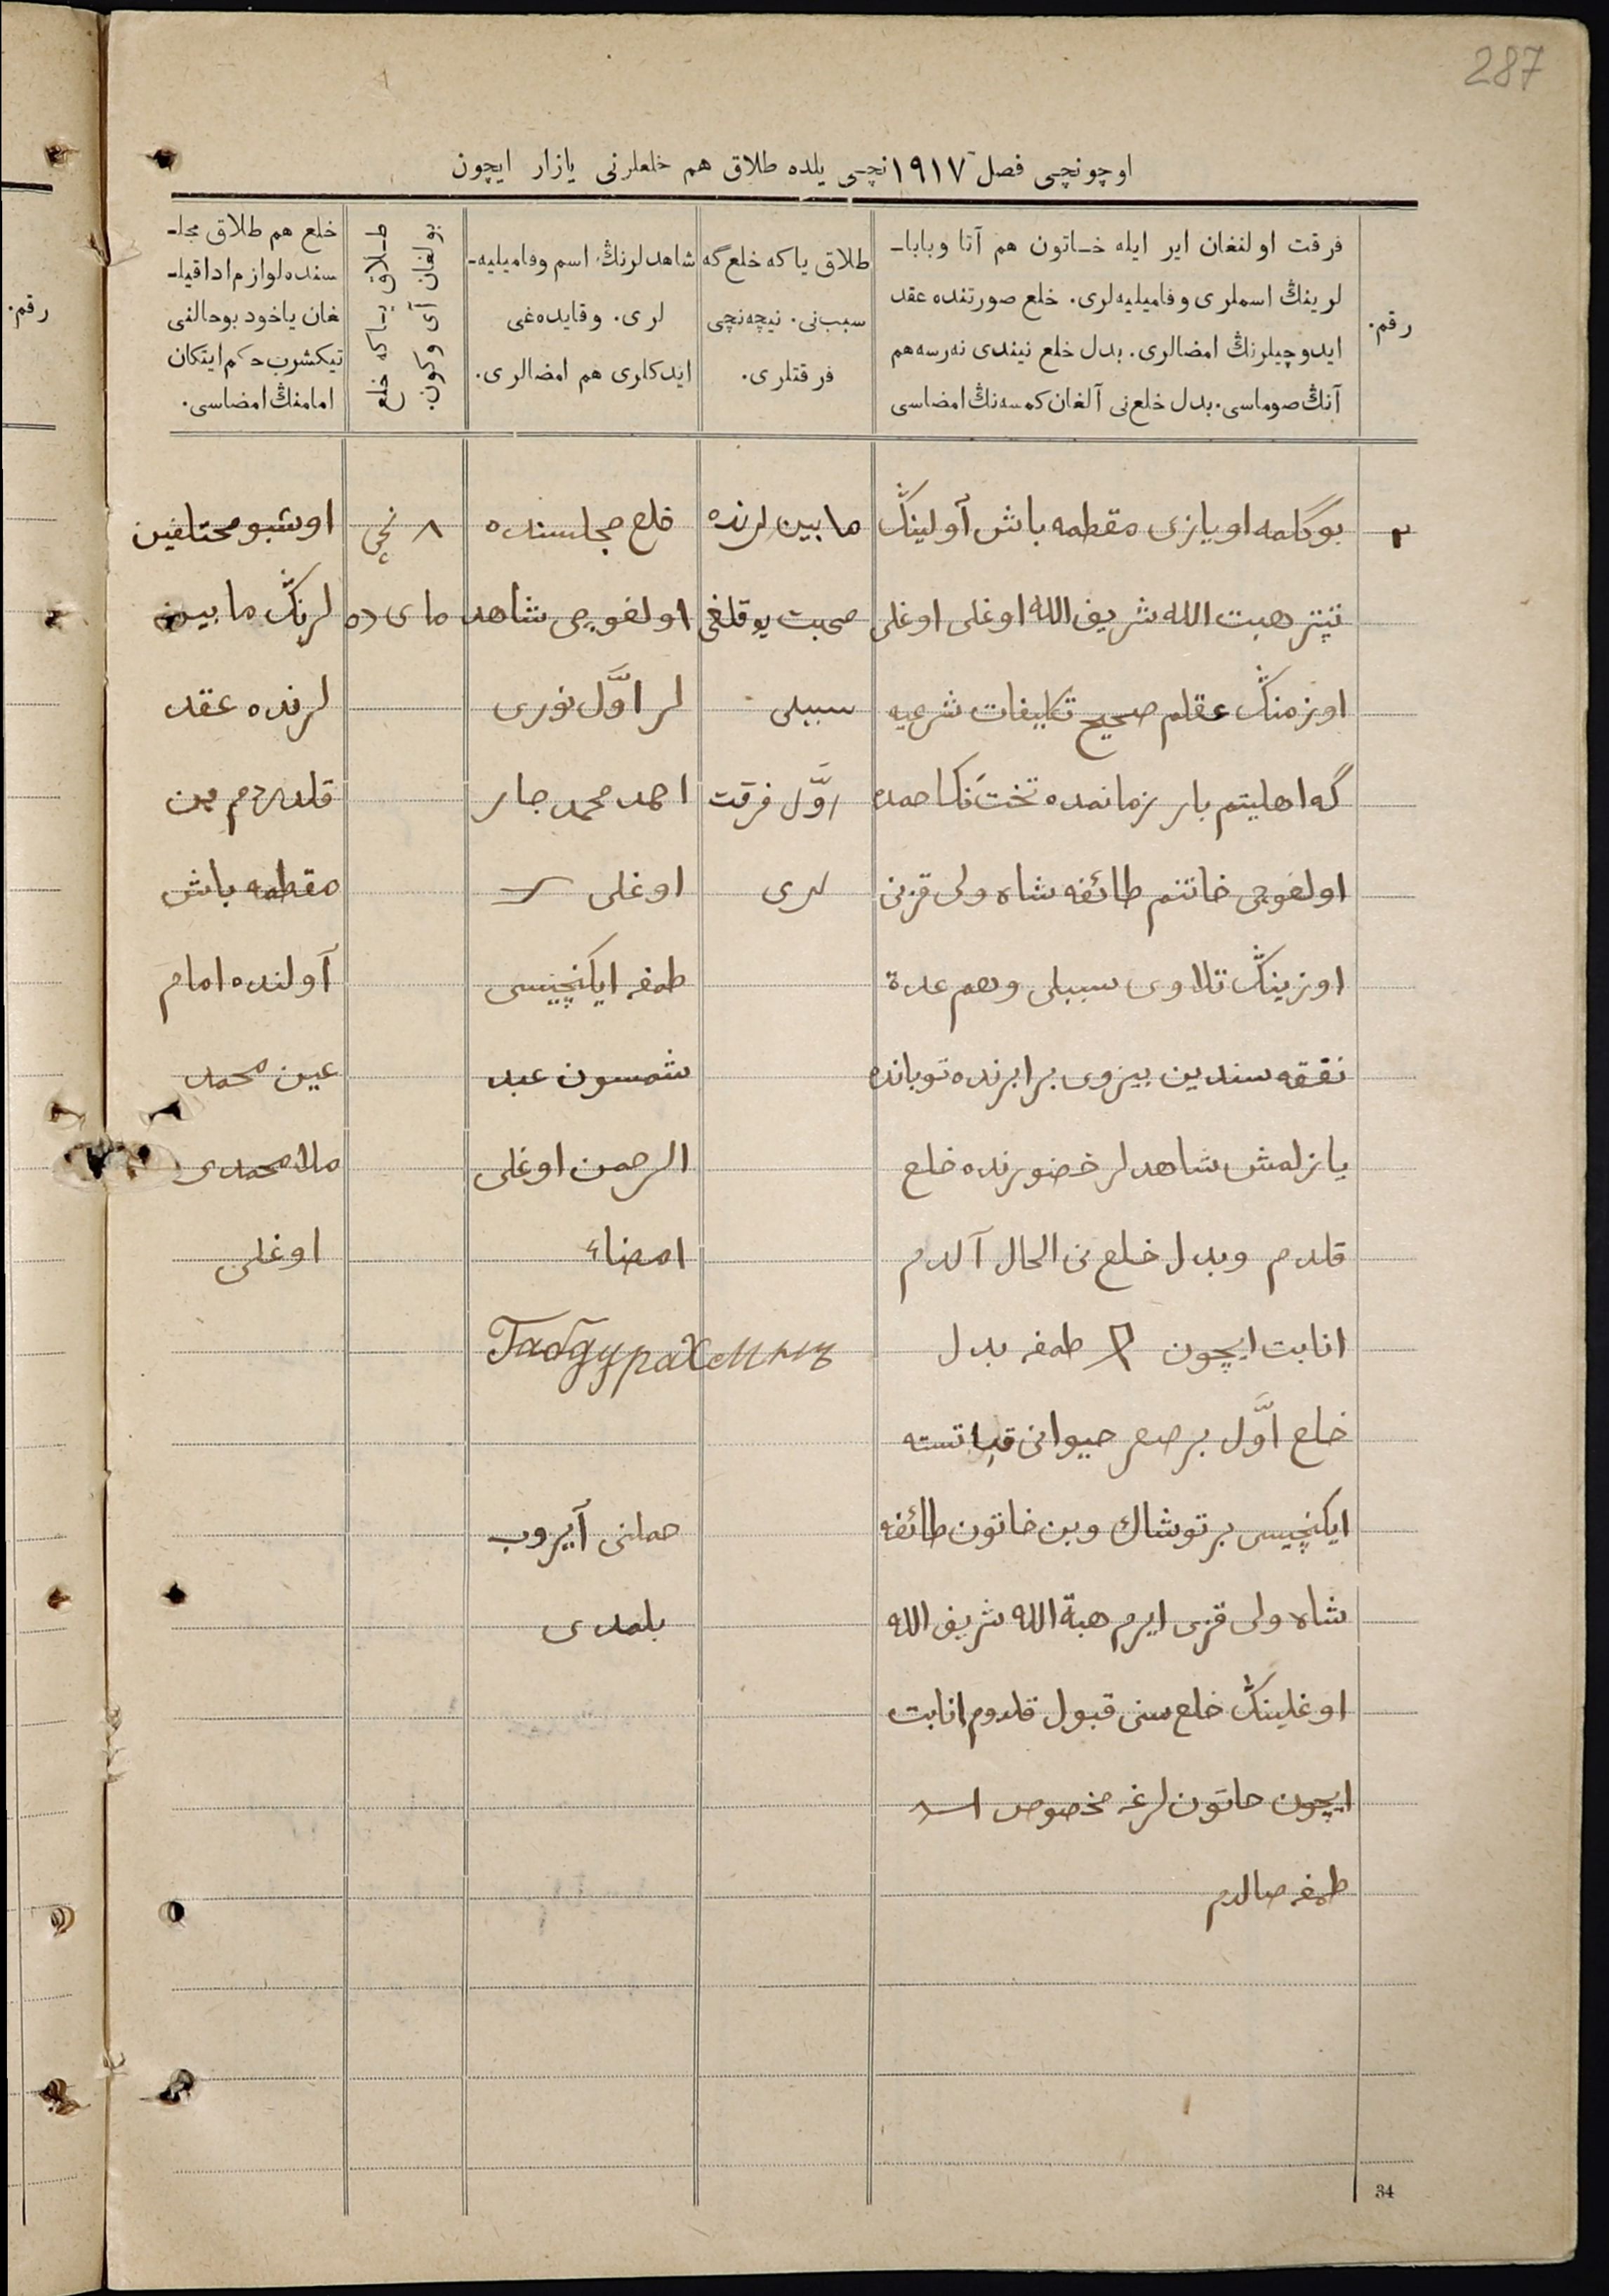 287
اوچونچی فصل ١٩١٧نچی یلده طلاق هم خلعلرنی یازار ایچون
رقم.
فرقت اولنغان ایر ایله خاتون هم آتا وبابا-
لرینڭ اسملری وفامیلیه‌لری. خلع صورتنده عقد
ایدوچیلرنڭ امضالری. بدل خلع نیندی نه‌رسه هم
آنڭ صوماسی. بدل خلع‌نی آلغان کمسه‌نڭ امضاسی
طلاق یا که خلع گه
سبب‌نی. نیچه‌نچی
فرقتلری.
شاهدلرنڭ اسم وفامیلیه-
لری. وقایده‌غی
ایدکلری هم امضالری.
طلاق یا که خلع
بولغان آی وکون.
خلع هم طلاق مجلـ
سنده لوازم اداقیلـ
غان یاخود بوحالنی
تیکشرب حکم ایتکان
امامنڭ امضاسی.
رقم.
٢
بوگلمه اویازی مقطمه باش آولینڭ
تپتر هبت الله شریف الله اوغلی اوغلی
اوزمنڭ عقلم صحیح تکلیفات شرعیه
گه اهلیتم بار زمانمده تخت نکاحمده
اولغوچی خاتنم طائفه شاه ولی قزنی
اوزینڭ تلاوی سببلی وهم عدة
نفقه سندین بیزوی برابرنده توبانده
یازلمش شاهدلر خضورنده خلع
قلدم وبدل خلع نی الحال آلدم
انابت ایچون طمغه بدل
خلع اوّل بر صعر حیوانی
ایکنچیسی بر توشاك وبن خاتون طائفه
شاه ولی قزی ایرم هبة الله شریف الله
اوغلینڭ خلع سنی قبول قلدوم انابت
ایچون خاتون لرغه مخصوص
طمغه صالدم
مابین لرنده
صحبت یوقلغی
سببلی
اوّل فرقت
لری
خلع مجلسنده
اولغوچی شاهد
لر اوّل نوری
احمد محمد جار
اوغلی
طمغه ایکنچیسی
شمسون عبد
الرحمن اوغلی
امضاء
Габдурахмнъ
حملنی آیروب
بلمدی
٨ نچی
مای ده
اوشبو مختلفین
لرنڭ مابین
لرنده عقد
قلدردم من
مقطمه باش
آولنده امام
عین محمد
ملا محمدی
اوغلی
34